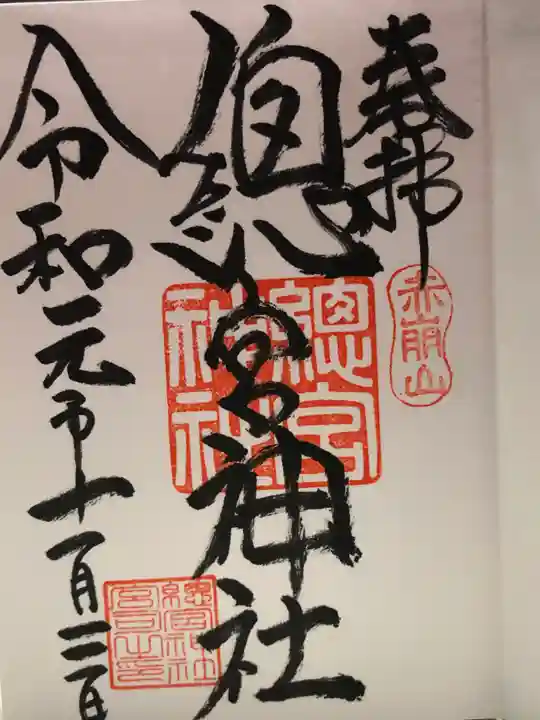 奉拝
赤崩山
總宮神社
總宮神社
令和元年十一月
總宮神社宮司之印